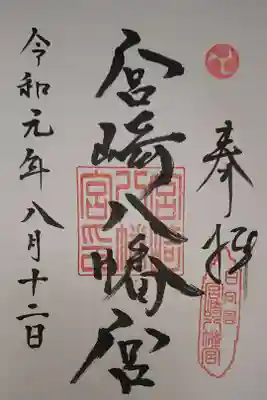 奉拝
宮崎八幡宮
令和元年八月十二日
宮崎八幡宮印